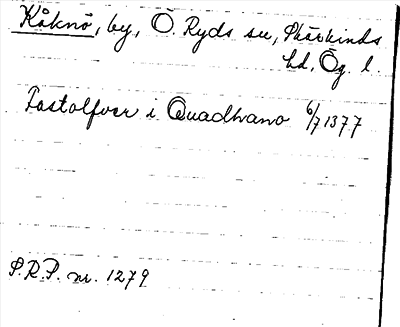 Kåknö, by, Ö. Ryds sn, Skärkinds
hd, Ög. l.
Fastolfver i Quadhvano 6/7 1377
S.R.P. nr. 1279